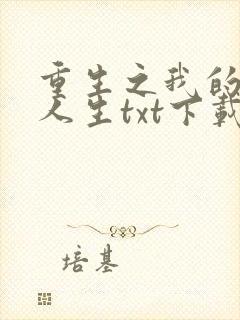 重生之我的
人生txt下载
培基